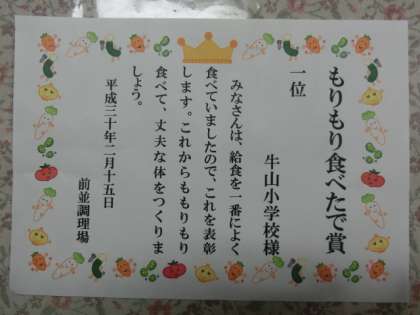 もりもり食べたで賞
一位
牛山小学校様
みなさんは、給食を一番によく
食べていましたので、これを表彰
します。これからももりもり
食べて、丈夫な体をつくりま
しょう。
平成三十年二月十五日
前並調理場